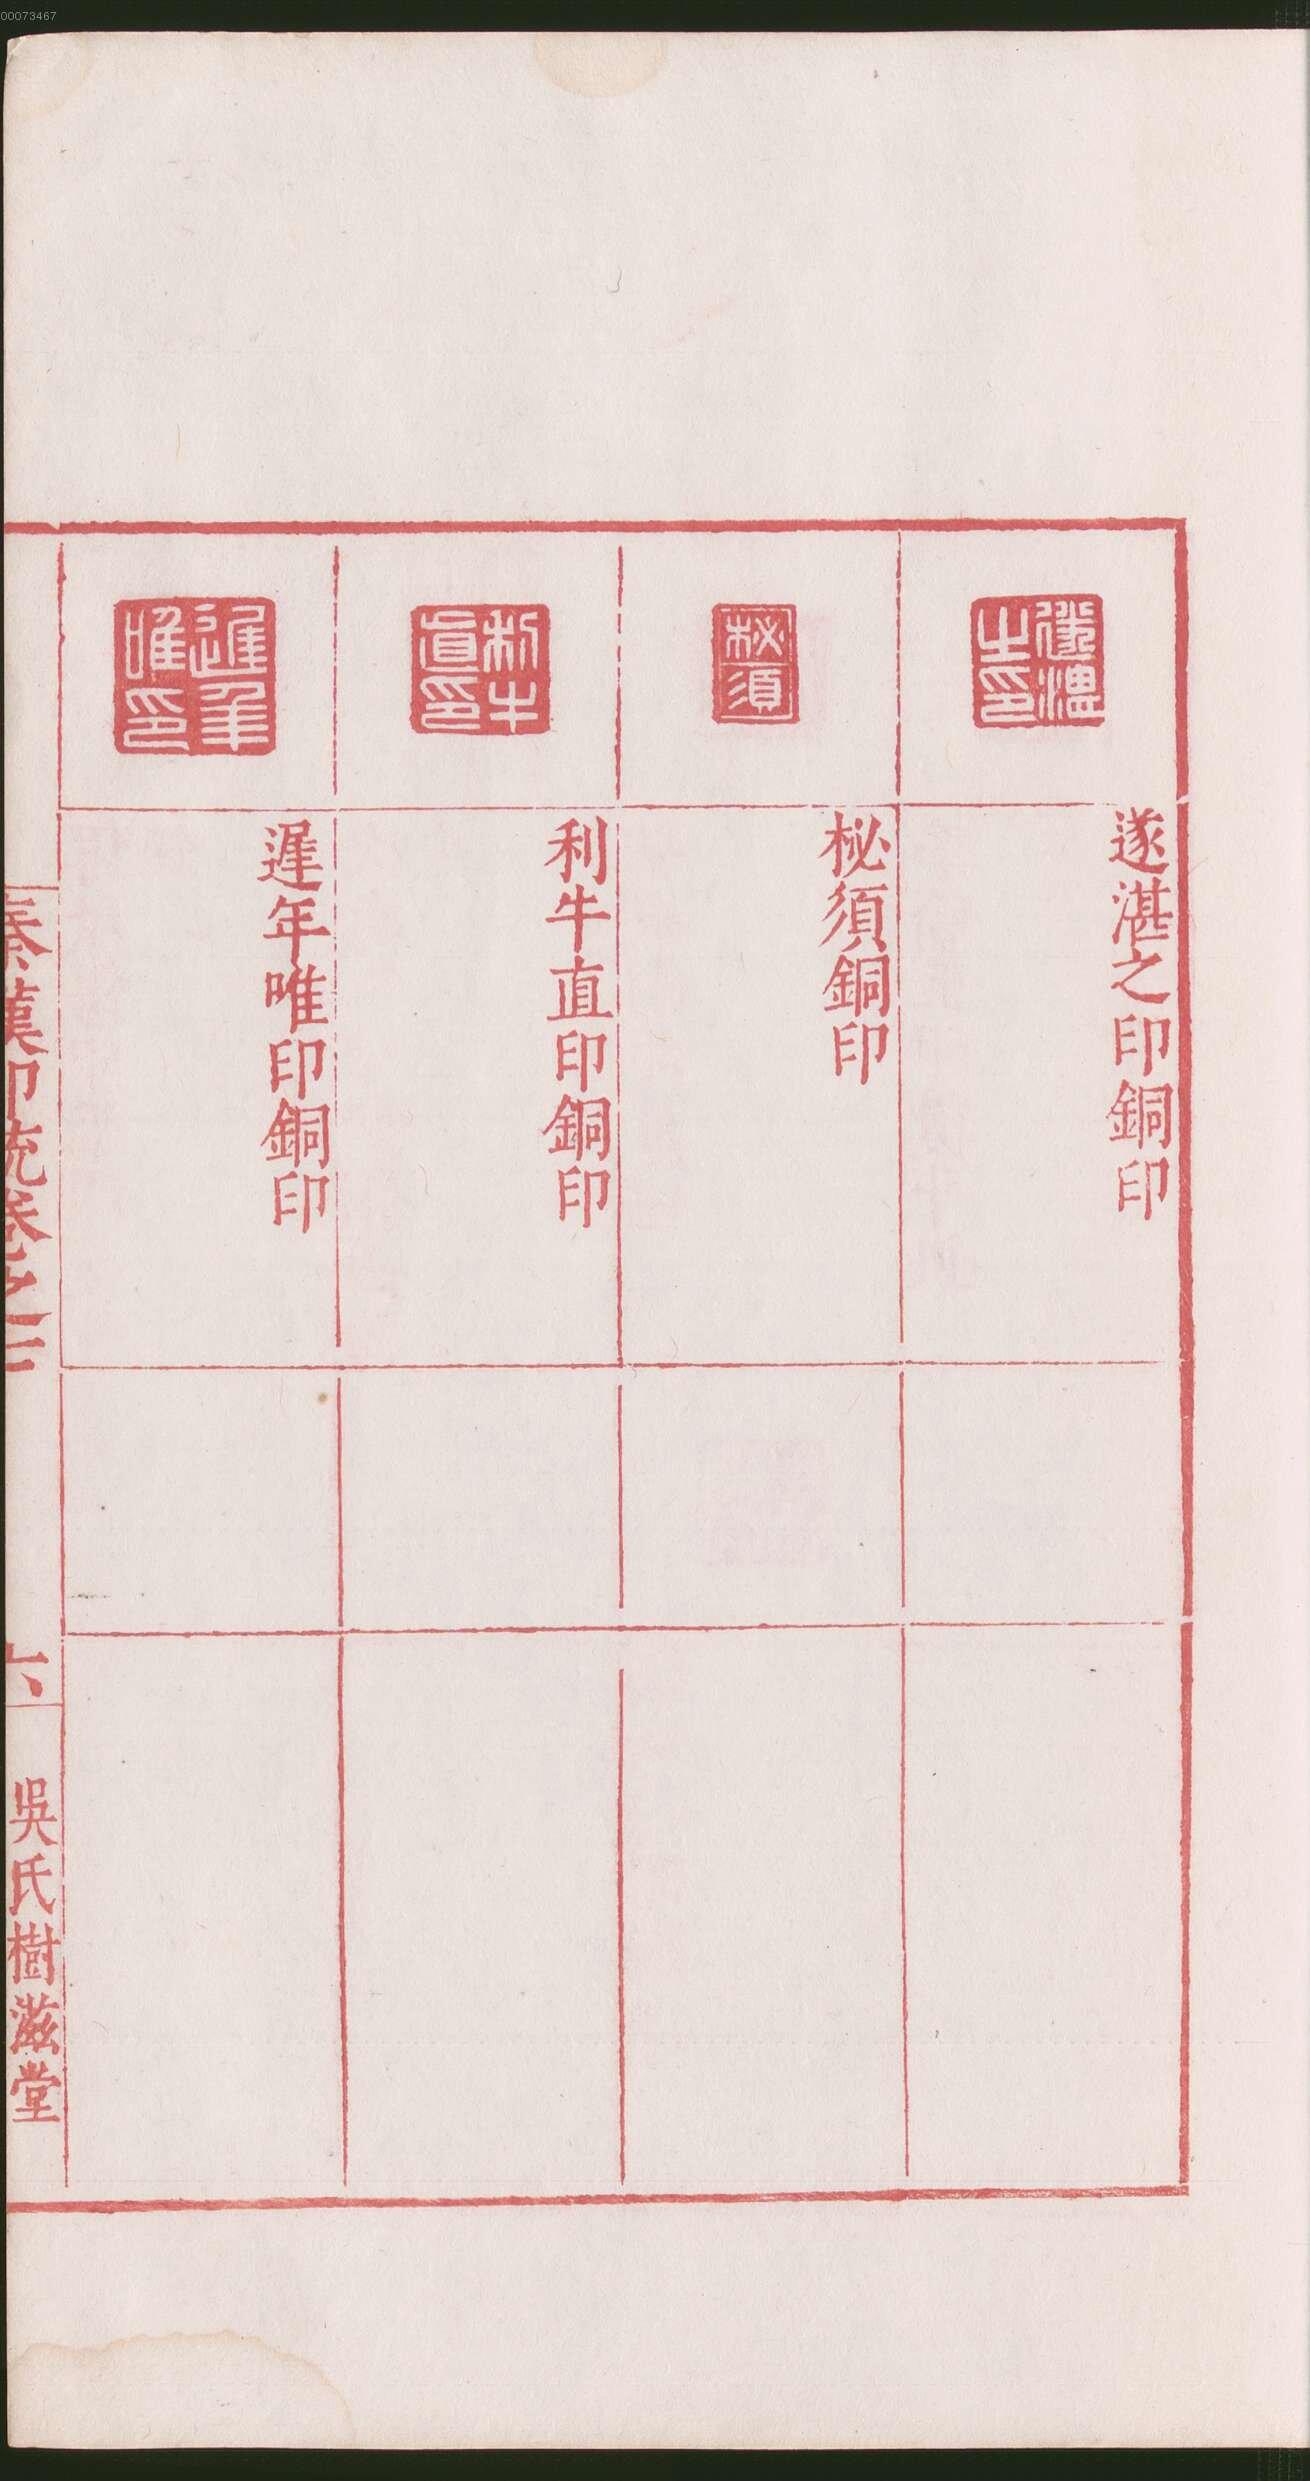 00073467
遂湛之印
遂湛之印銅印
柲須
柲須銅印
利牛直印
利牛直印銅印
遲年唯印
遲年唯印銅印
秦漢印統卷之二
六
吳氏樹滋堂